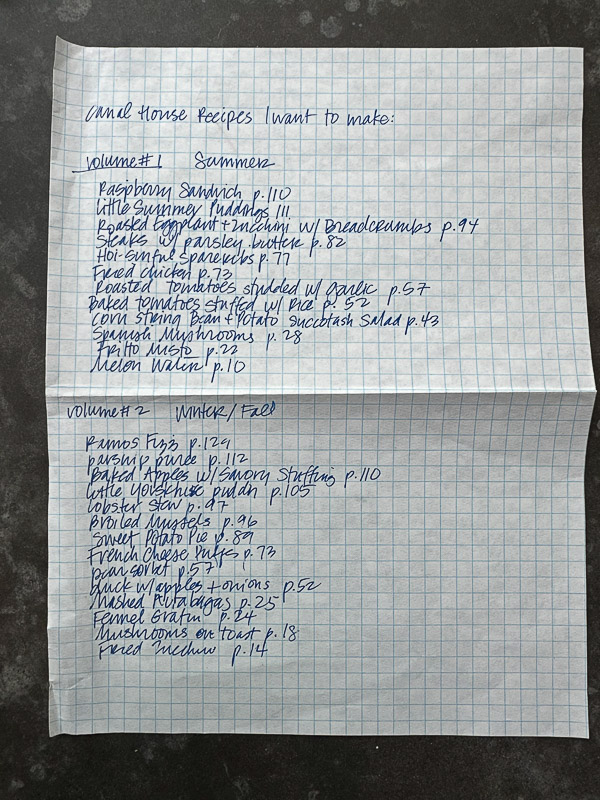 Canal House Recipes I want to make:
Volume #1 Summer
Raspberry Sandwich p.110
Little Summer Puddings 111
Roasted Eggplant + Zucchini w/ Breadcrumbs p.94
Steaks w/ parsley butter p.82
Hoi-sinful Spareribs p.77
Fried chicken p.73
Roasted tomatoes studded w/ garlic p.57
Baked tomatoes stuffed w/ Rice p. 52
Corn String Bean + Potato Succotash Salad p.43
Spanish Mushrooms p.28
Fritto Misto p.22
Melon Water p.10
Volume #2 Winter/Fall
Ramos Fizz p.129
parsnip puree p.112
Baked Apples w/ Savory Stuffing p.110
little Yorkshire puddin p.105
lobster Stew p.97
Broiled Mussels p.96
Sweet Potato Pie p.89
French Cheese Puffs p.73
pear sorbet p.57
Duck w/ apples + onions p.52
Mashed Rutabagas p.25
Fennel Gratin p.24
Mushrooms on toast p.18
Fried Zucchini p.14